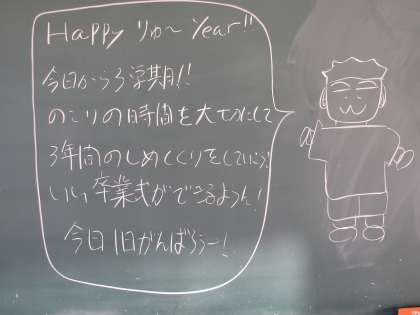 Happy りゅ〜 Year!!
今日から3学期!!
のこりの時間を大切にして
3年間のしめくくりをしていこう!
いい卒業式ができるように!
今日1日がんばろうー!